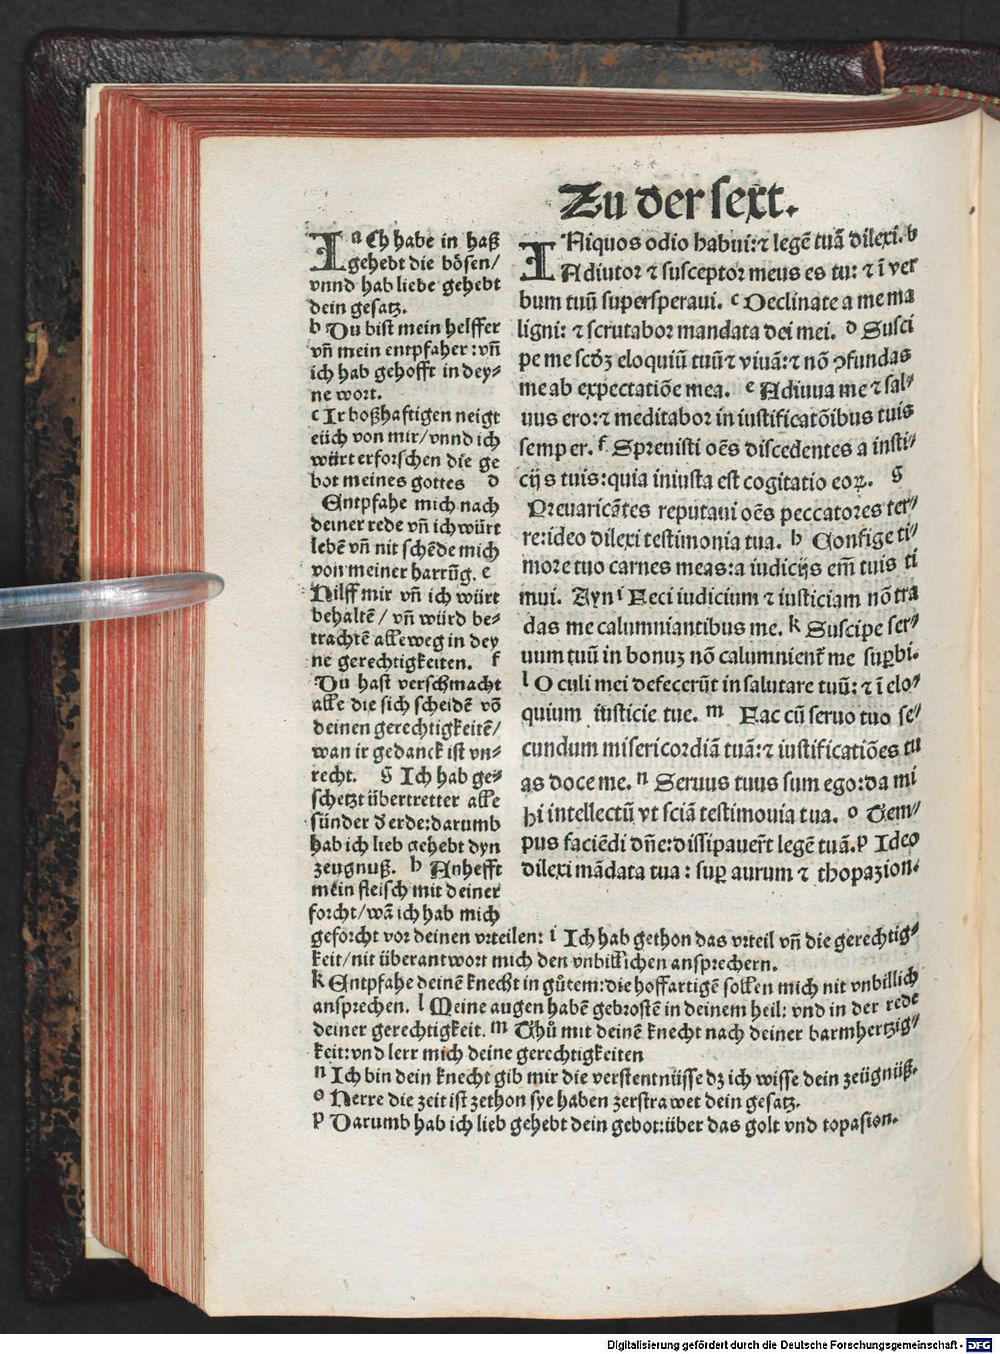 Zu der sext.
I a Ch habe in haß
gehebt die bösen/
vnnd hab liebe gehebt
dein gesatz.
b Du bist mein helffer
vñ mein entpfaher:vñ
ich hab gehofft in dey⸗
ne wort.
c Ir boßhaftigen neigt
eüch von mir/vnnd ich
würt erforschen die ge
bot meines gottes d
Entpfahe mich nach
deiner rede vñ ich würt
lebē vñ nit schēde mich
von meiner harrūg. e
Hilff mir vñ ich würt
behaltē/ vñ würd be⸗
trachtē alleweg in dey
ne gerechtigkeiten. f
Du hast verschmacht
alle die sich scheidē vō
deinen gerechtigkeitē/
wan ir gedanck ist vn⸗
recht. g Ich hab ge⸗
schetzt übertretter alle
sünder d erde:darumb
hab ich lieb gehebt dyn
zeugnuß. h Anhefft
mein fleisch mit deiner
forcht/wā ich hab mich
geforcht vor deinen vrteilen: i Ich hab gethon das vrteil vñ die gerechtig⸗
keit/nit überantwort mich den vnbillichen ansprechern.
k Entpfahe deinē knecht in gůtem:die hoffartigē sollen mich nit vnbillich
ansprechen. l Meine augen habē gebrostē in deinem heil: vnd in der rede
deiner gerechtigkeit. m Thů mit deinē knecht nach deiner barmhertzig⸗
keit:vnd lerr mich deine gerechtigkeiten
n Ich bin dein knecht gib mir die verstentnüsse dz ich wisse dein zeügnüß.
o Herre die zeit ist zethon sye haben zerstrawet dein gesatz.
p Darumb hab ich lieb gehebt dein gebot:über das golt vnd topasion.
I Niquos odio habui:⁊ legē tuā dilexi. b
Adiutor ⁊ susceptor meus es tu: ⁊ ī ver
bum tuū supersperaui. c Declinate a me ma
ligni: ⁊ scrutabor mandata dei mei. d Susci
pe me scd̄ꝫ eloquiū tuū ⁊ viuā:⁊ nō ꝯfundas
me ab expectatiōe mea. e Adiuua me ⁊ sal⸗
uus ero:⁊ meditabor in iustificatōibus tuis
semper. f Spreuisti oēs discedentes a iusti⸗
cijs tuis:quia iniusta est cogitatio eoꝝ. g
Preuaricātes reputaui oēs peccatores ter⸗
re:ideo dilexi testimonia tua. h Confige ti⸗
more tuo carnes meas:a iudicijs em̄ tuis ti
mui. Ayn i Feci iudicium ⁊ iusticiam nō tra
das me calumniantibus me. k Suscipe ser⸗
uum tuū in bonuꝫ nō calumnient̄ me suꝑbi.
l Oculi mei defecerūt in salutare tuū: ⁊ ī elo⸗
quium iusticie tue. m Fac cū seruo tuo se⸗
cundum misericordiā tuā:⁊ iustificatiōes tu
as doce me. n Seruus tuus sum ego:da mi
hi intellectū vt sciā testimonia tua. o Tem⸗
pus faciēdi dn̄e:dissipauer̄t legē tuā. p Ideo
dilexi mādata tua : suꝑ aurum ⁊ thopazion.
Digitalisierung gefördert durch die Deutsche Forschungsgemeinschaft - DFG